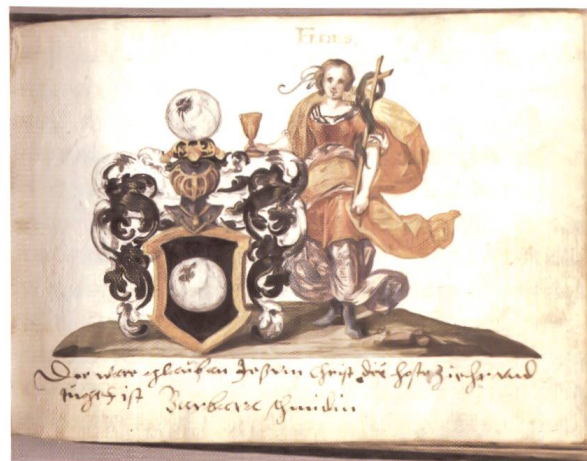 FIDES.
Der ware glauben an Jesum Christ die hoste ziehr und
tugent ist Barbara Schmidin